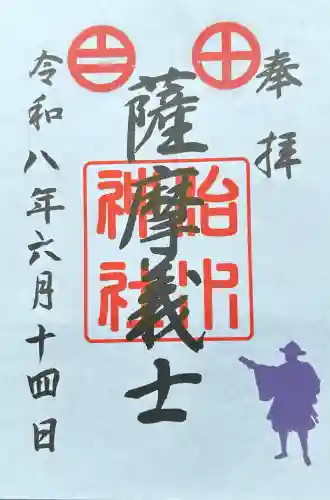 奉拝
薩摩義士
治水神社
令和八年六月十四日